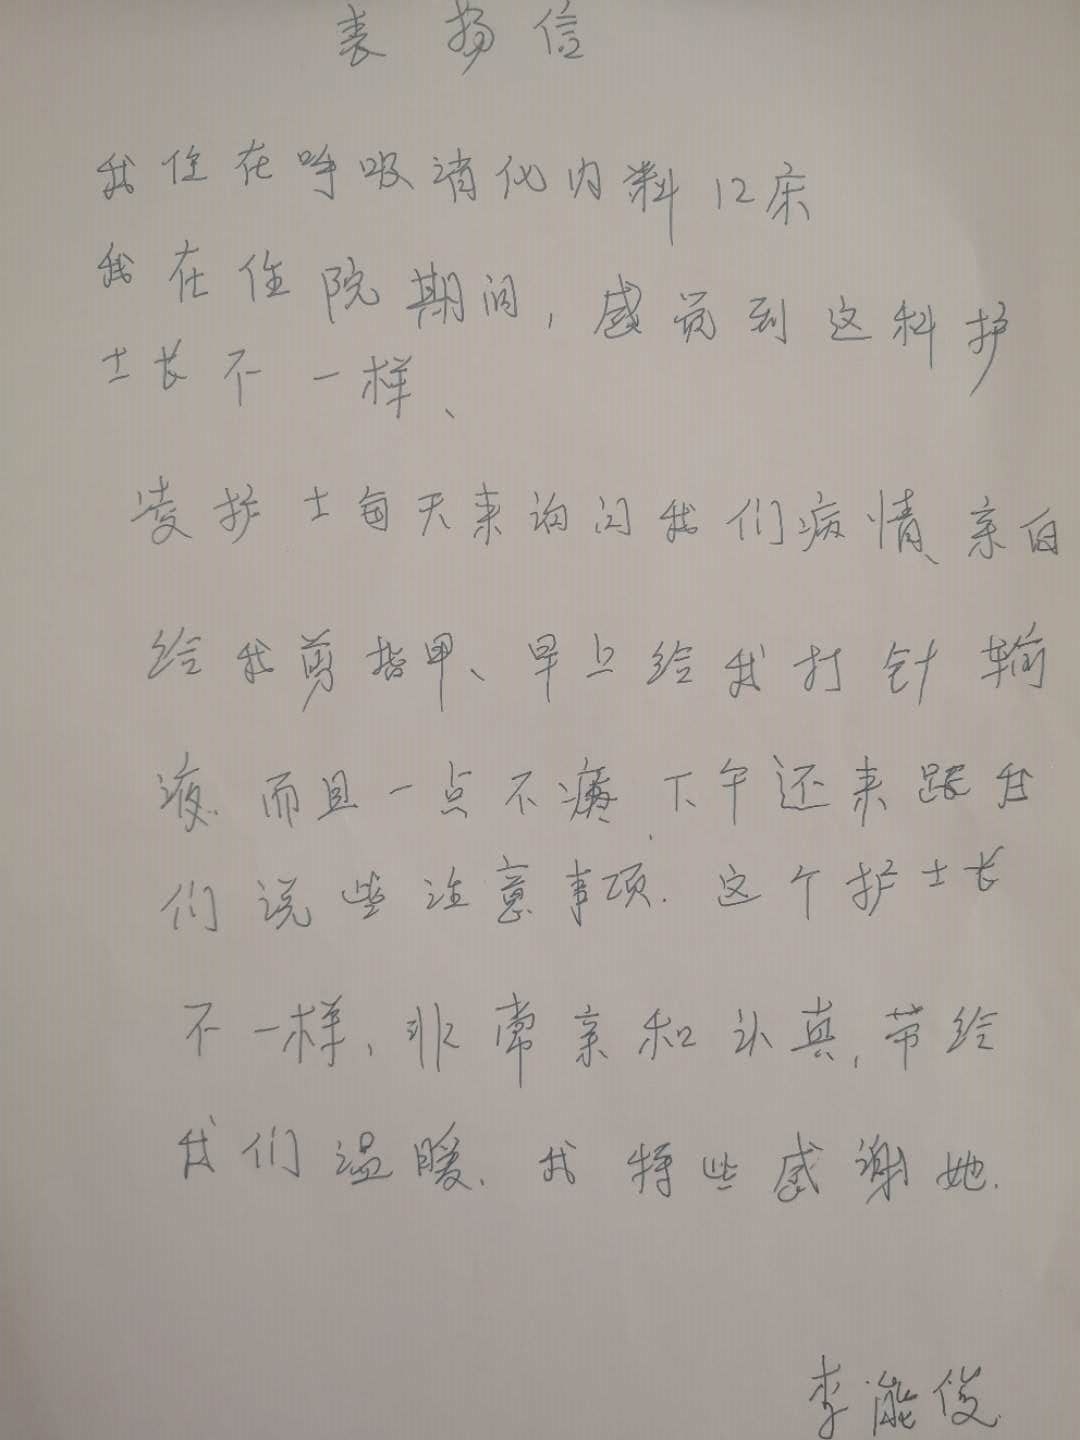 表扬信
我住在呼吸消化内科12床
我在住院期间,感觉到这科护
士长不一样、
凌护士每天来询问我们病情、亲自
给我剪指甲、早上给我打针输
液.而且一点不痛.下午还来跟我
们说些注意事项.这个护士长
不一样,非常亲和认真,带给
我们温暖.我特些感谢她.
李能俊